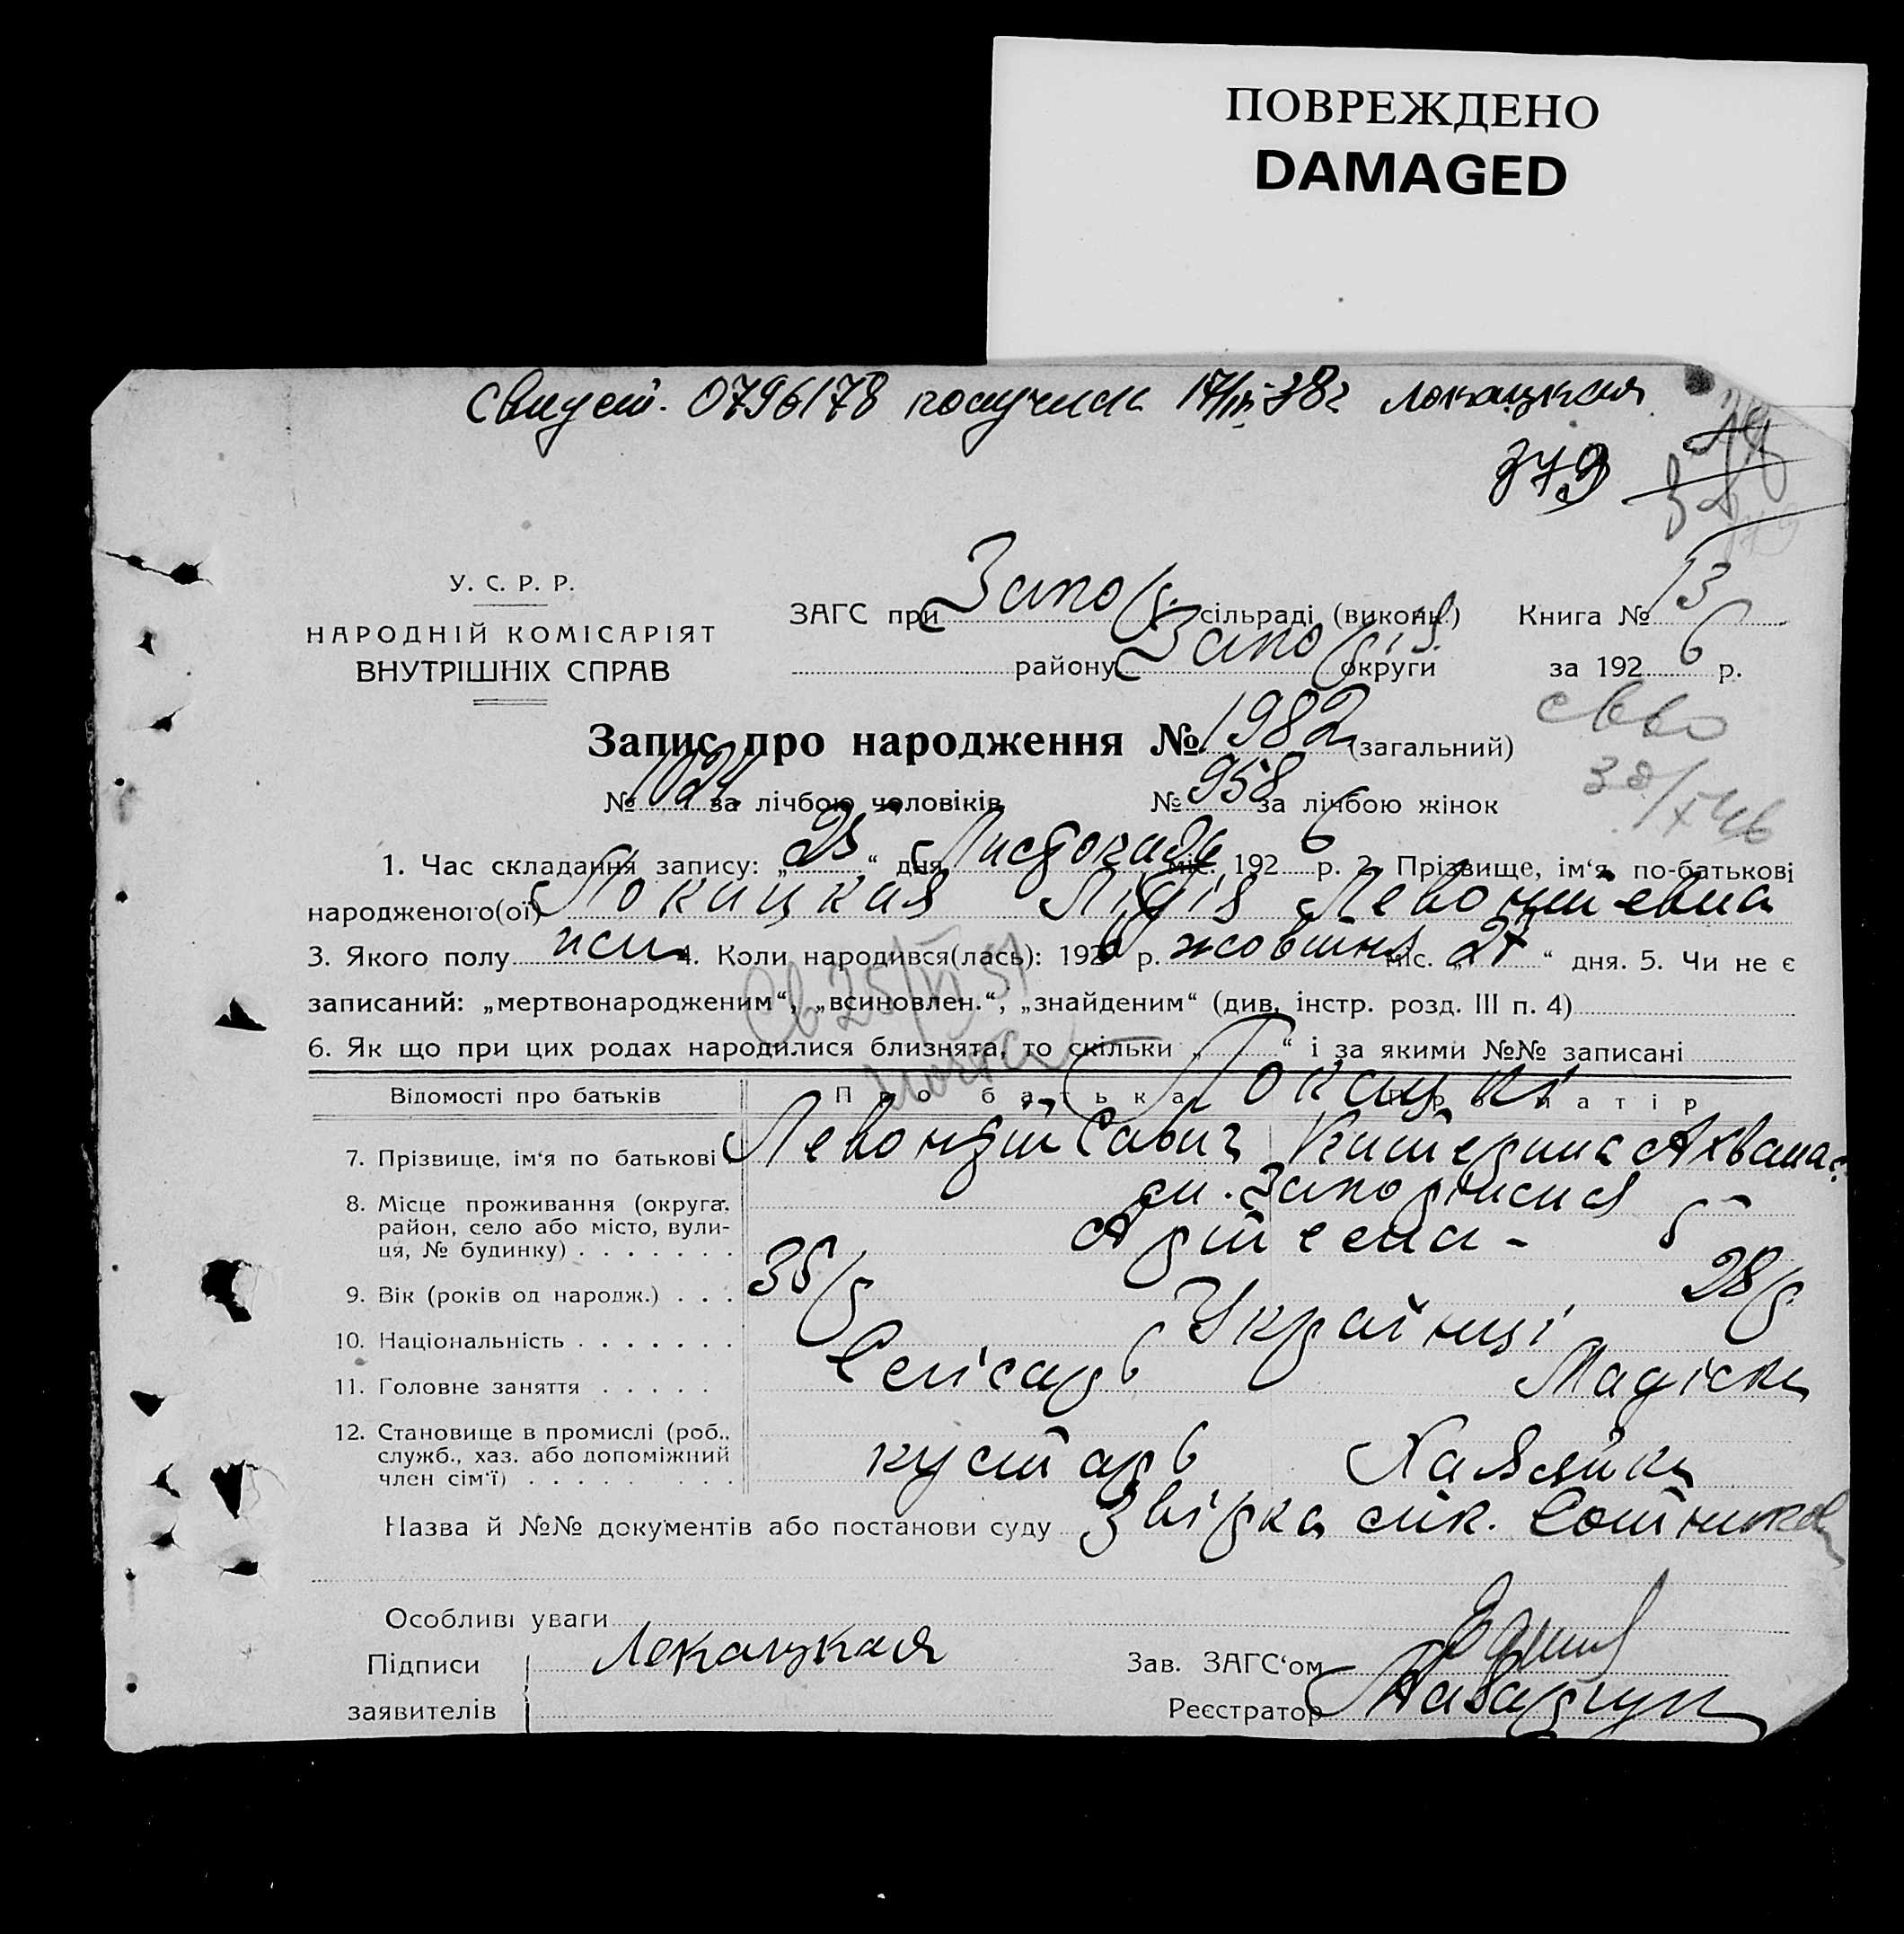 ПОВРЕЖДЕНО
DAMAGED
Свидет. 0796178 получила 17/III-38г Локацкая
379
У. С. Р. Р.
НАРОДНІЙ КОМІСАРІЯТ
ВНУТРІШНІХ СПРАВ
ЗАГС при Запор. сільраді (викон.)
Книга № 13
району Запор округи
за 1926 р.
Запис про народження № 1982 (загальний)
№ 1024 за лічбою чоловіків № 958 за лічбою жінок
1. Час складання запису: „25“ дня Листопаду міс. 1926 р. 2. Прізвище, ім‘я, по-батькові
народженого(ої) Локацкая Лідія Левонтіевна
3. Якого полу жін 4. Коли народився(лась): 1926 р. жовтня міс. „27“ дня. 5. Чи не є
записаний: „мертвонародженим“, „всиновлен.“, „знайденим“ (див. інстр. розд. III п. 4)
6. Як що при цих родах народилися близнята, то скільки „ “ і за якими №№ записані
Відомості про батьків Про батька Про матір
Локацкі
7. Прізвище, ім‘я по батькові Левонтій Савич Катерина Ахвана
8. Місце проживання (округа, ст. Запоріжжя
район, село або місто, вули-
ця, № будинку)
9. Вік (років од народж.) 35 р 28 р
10. Національність Українці
11. Головне заняття Слісарь
12. Становище в промислі (роб.,
служб., хаз. або допоміжний кустарь Хазяйка
член сім‘ї)
Назва й №№ документів або постанови суду Звірка
Особливі уваги
Підписи Локацкая
Зав. ЗАГС‘ом
заявителів
Реєстратор